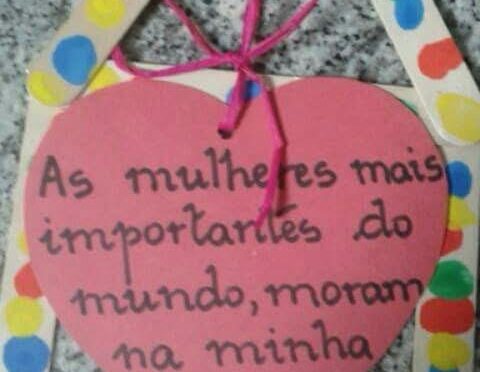 As mulheres mais
importantes do
mundo, moram
na minha